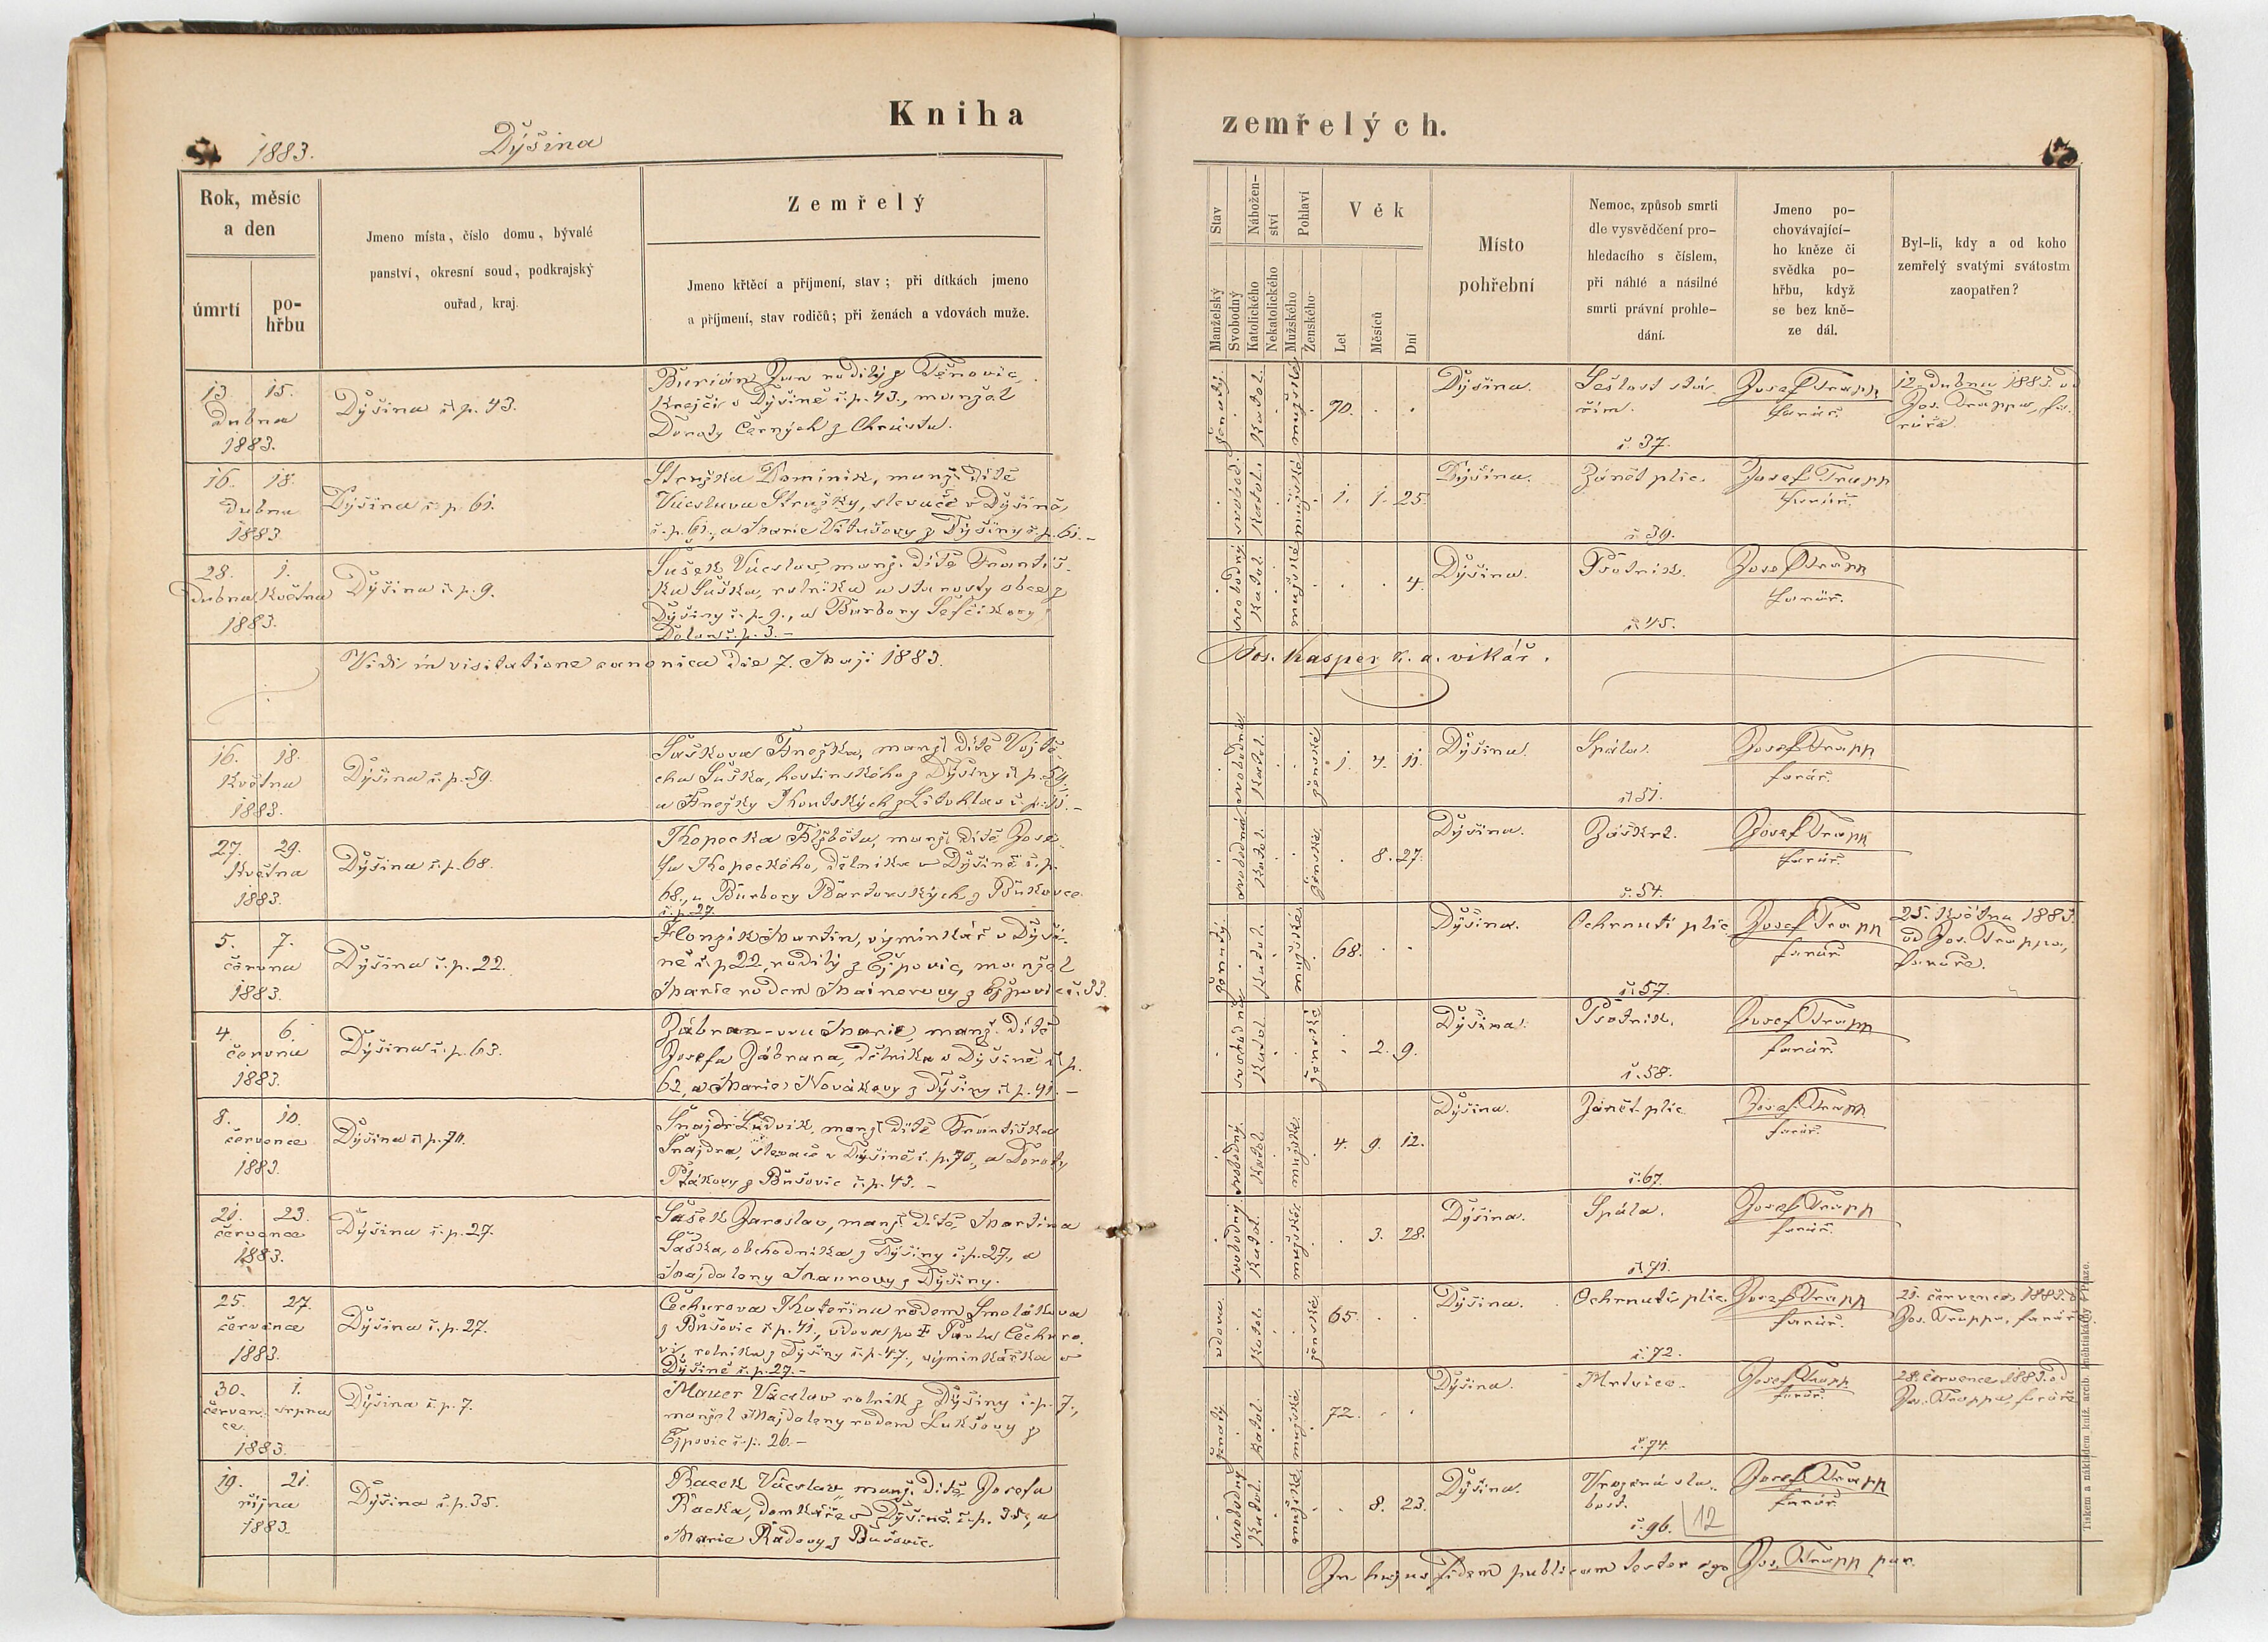 Kniha zemřelých.
1883. Dýšina
Rok, měsíc
a den
úmrtí
po-
hřbu
Jmeno místa, číslo domu, bývalé
panství, okresní soud, podkrajský
ouřad, kraj.
Zemřelý
Jmeno křtěcí a příjmení, stav; při dítkách jmeno
a příjmení, stav rodičů; při ženách a vdovách muže.
Stav
Manželský
Svobodný
Nábožen-
ství
Katolického
Nekatolického
Pohlaví
Mužského
Ženského
Věk
Let
Měsíců
Dní
Místo
pohřební
Nemoc, způsob smrti
dle vysvědčení pro-
hledacího s číslem,
při náhlé a násilné
smrti právní prohle-
dání.
Jmeno po-
chovávající-
ho kněze či
svědka po-
hřbu, když
se bez kně-
ze dál.
Byl-li, kdy a od koho
zemřelý svatými svátostm
zaopatřen?
13. 15.
Dubna
1883.
Dýšina č. p. 43.
Burián Jan rodilý z Těnovic,
Krejčí v Dýšině č. p. 43., manžel
Doroty Černých z Chrástu.
ženatý. Katol. mužské 70. . .
Dýšina.
Sešlost stá-
řím.
č. 37.
Josef Trapp
farář.
12. dubna 1883. od
Jos. Trappa, fa-
ráře.
16. 18.
Dubna
1883
Dýšina č. p. 61.
Stružka Dominik, manž. dítě
Václava Stružky, slevače v Dýšině,
č. p. 61., a Marie Vitušovy z Dýšiny č. p. 61. –
svobod. Katol. mužské 1. 1. 25.
Dýšina.
Zánět plic.
č. 39.
Josef Trapp
farář.
28. 1.
Dubna Května
1883.
Dýšina č. p. 9.
Šašek Václav, manž. dítě Františ-
ka Šaška, rolníka a starosty obce z
Dýšiny č. p. 9., a Barbory Šefčíkovy
Dolan č. p. 3. –
svobodný Katol. mužské . . 4.
Dýšina.
Psotník.
č. 45.
Josef Trapp
farář.
Vidi in visitatione canonica die 7. Maji 1883.
Jos. Kasper k. a. vikář.
16. 18.
Května
1883.
Dýšina č. p. 59.
Šaškova Anežka, manž. dítě Vojtě-
cha Šaška, hostinského z Dýšiny č. p. 59,
a Anežky Koutských z Litohlav č. p. 11. –
svobodná Katol. ženské 1. 4. 11.
Dýšina.
Spála.
č. 51.
Josef Trapp
farář.
27. 29.
Května
1883.
Dýšina č. p. 68.
Kopecka Alžběta, manž. dítě Jose-
fa Kopeckého, dělníka v Dýšině č. p.
68., a Barbory Bartovských z Bukovce
č. p. 27.
svobodná Katol. ženské . 8. 27.
Dýšina.
Záškrt.
č. 54.
Josef Trapp
farář.
5. 7.
června
1883.
Dýšina č. p. 22.
Honzík Martin, výminkář v Dýši-
ně č. p. 22., rodilý z Ejpovic, manžel
Marie rodem Mainerovy z Ejpovic č. 33.
ženatý. Katol. mužské 68. . .
Dýšina.
Ochrnutí plic.
č. 57.
Josef Trapp
farář.
25. Května 1883.
od Jos. Trappa,
faráře.
4. 6.
června
1883.
Dýšina č. p. 63.
Marie, manž. dítě
Josefa Zábrana, dělníka v Dýšině č. p.
62, a Marie Novákovy z Dýšiny č. p. 41. –
svobodná Katol. ženské . 2. 9.
Dýšina.
Psotník.
č. 58.
Josef Trapp
farář.
8. 10.
července
1883.
Dýšina č. p. 70.
Šnajdr Ludvík, manž. dítě Františka
Šnajdra, slevače v Dýšině č. p. 70., a Doroty
Ptákovy z Bušovic č. p. 43. –
svobodný. Katol. mužské. 4. 9. 12.
Dýšina.
Zánět plic.
č. 67.
Josef Trapp
farář.
21. 23.
července
1883.
Dýšina č. p. 27.
Šašek Jaroslav, manž. dítě Martina
Šaška, obchodníka z Dýšiny č. p. 27., a
Majdaleny Maurovy z Dýšiny.
svobodný. Katol. mužské. . 3. 28.
Dýšina.
Spála.
č. 71.
Josef Trapp
farář.
25. 27.
července
1883.
Dýšina č. p. 27.
Čechurova Kateřina rodem Smolákova
z Bušovic č. p. 41., vdova po † Pavlu Čechuro-
vi, rolníku z Dýšiny č. p. 47., výminkářka v
Dýšině č. p. 27. –
vdova. Katol. ženské 65. . .
Dýšina.
Ochrnutí plic.
č. 72.
Josef Trapp
farář.
21. července 1883. od
Jos. Trappa, faráře.
30. 1.
červen- srpna
ce.
1883.
Dýšina č. p. 7.
Mauer Václav rolník z Dýšiny č. p. 7.,
manžel Majdaleny rodem Lukšovy z
Ejpovic č. p. 26. –
ženatý Katol. mužské 72. . .
Dýšina.
Mrtvice.
č. 74.
Josef Trapp
farář.
28. července 1883. od
Jos. Trappa, faráře
19. 21.
října
1883.
Dýšina č. p. 35.
Racek Václav, manž. dítě Josefa
Racka, domkáře v Dýšině č. p. 35., a
Marie Radovy z Bušovic.
svobodný Katol. mužské. . 8. 23.
Dýšina.
Vrozená sla-
bost.
č. 96. 12
Josef Trapp
farář.
In hujus fidem publicam testor ego Jos. Trapp par.
Tiskem a nákladem kníž. arcib. knihtiskárny v Praze.